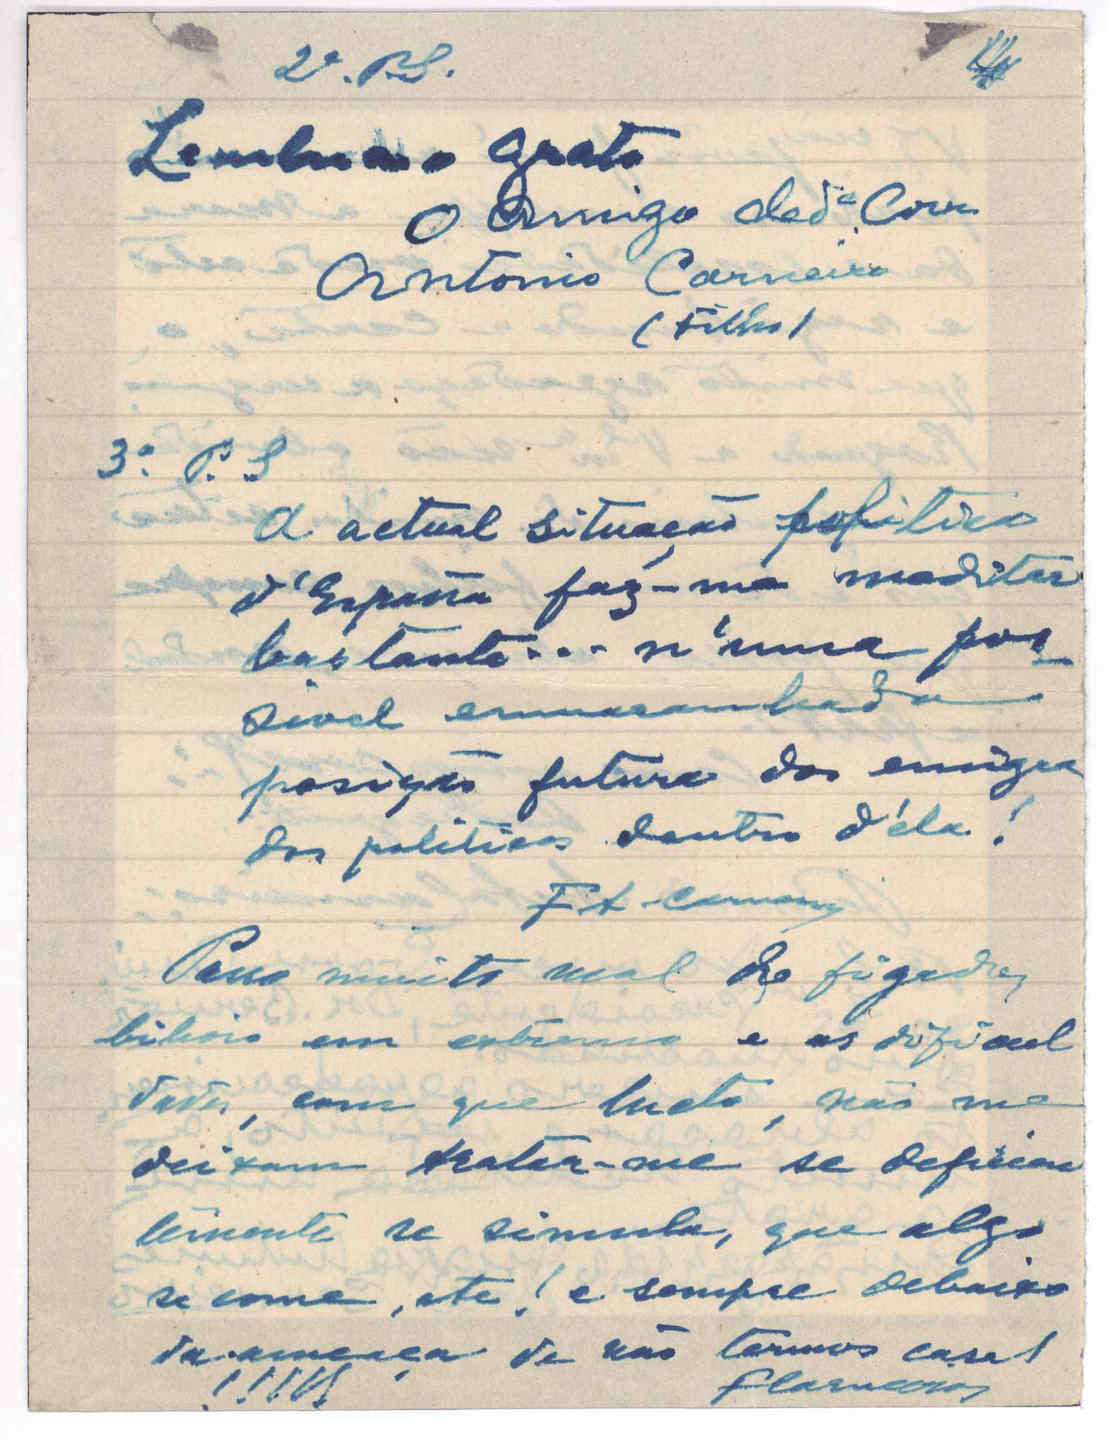 2º. P.S.
Lembra-o grato
O Amigo dedº Corr
Antonio Carneiro
(Filho)
3º. P.S
A actual situação politica
d'España faz-me meditar
bastante... n'uma pos
sivel emmaranhada
posição futura dos emigra
dos politicos dentro d'éla!
F A Carneiro
Passo muito mal de figado,
bilioso em extremo e as dificul
dades, com que lucto, não me
deixam tratar-me se deficien
temente se simula, que algo
se come, etc! e sempre debaixo
da ameaça de não termos casa!
!!!!!!
FCarneiro